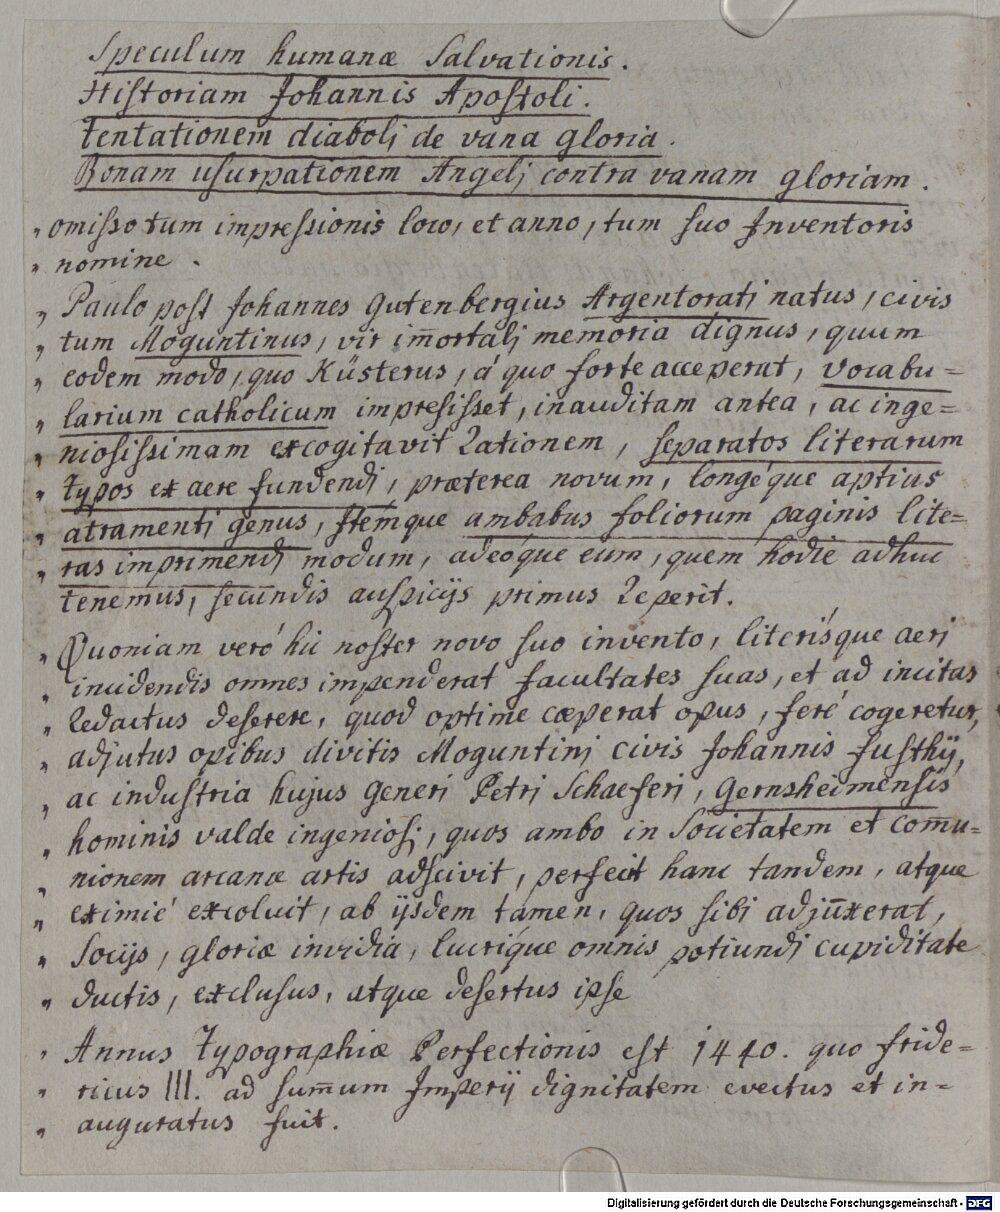 Speculum humanæ Salvationis.
Historiam Johannis Apostoli.
Tentationem diabolj de vana gloria.
Bonam usurpationem Angelj contra vanam gloriam.
„ omisso tum impressionis loco, et anno, tum suo Inventoris
„ nomine.
„ Paulo post Johannes Gutenbergius Argentorati natus, civis
„ tum Moguntinus, vir im̄ortalj memoria dignus, quum
„ eodem modo, quo Küsterus, á quo forte acceperat, vocabu=
„ larium catholicum impresisset, inauditam antea, ac inge=
„ niosissimam excogitavit Rationem, separatos literarum
„ typos ex aere fundendj, præterea novum, longéque aptius
„ atramentj genus, Itemque ambabus foliorum paginis lite=
„ ras imprimendj modum, adeóque eum, quem hodie adhuc
tenemus, secundis auspicijs primus Reperit.
„ Quoniam veró hic noster novo suo invento, literisque aerj
„ incidendis omnes impenderat facultates suas, et ad incitas
„ Redactus deserere, quod optime cæperat opus, feré cogeretur,
„ adjutus opibus divitis Moguntinj civis Johannis Fusthij,
„ ac industria hujus Generi Petrj Schaeferi, Gernsheimensis
„ hominis valde ingeniosj, quos ambo in Societatem et com̄u=
„ nionem arcanæ artis adscivit, perfecit hanc tandem, atque
„ eximié excoluit, ab ijsdem tamen, quos sibi adjūxerat,
„ Socijs, gloriæ invidia, lucrique omnis potiundj cupiditate
„ ductis, exclusus, atque desertus ipse
„ Annus Typographiæ Perfectionis est 1440. quo fride=
„ ricus III. ad sum̄um Imperij dignitatem evectus et in=
„ auguratus fuit.
Digitalisierung gefördert durch die Deutsche Forschungsgemeinschaft - DFG